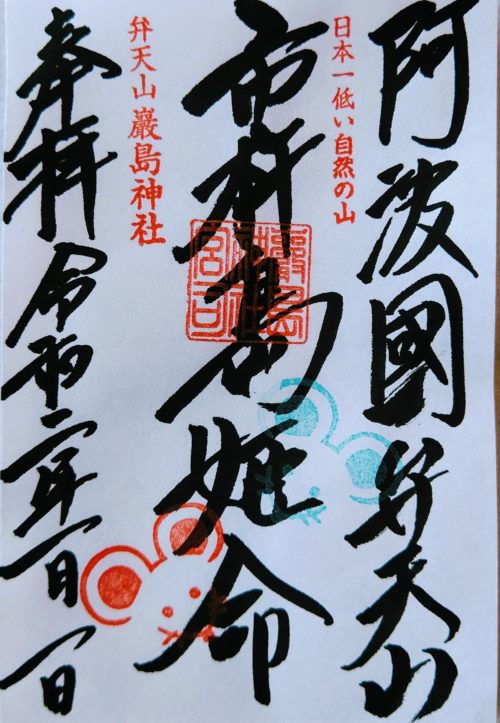 阿波國弁天山
日本一低い自然の山
市杵島姫命
弁天山巌島神社
奉拝令和二年一月一日